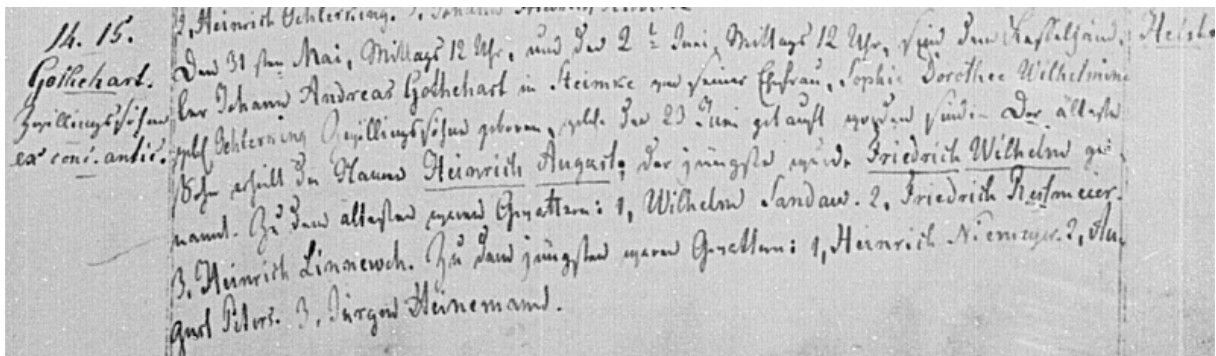 2, Heinrich Oehlerking. 3, Johann
14. 15.
Gothehart.
Zwillingssöhne
ex conc. antic.
Den 31 sten Mai, Mittags 12 Uhr, und den 2 t. Juni, Mittags 12 Uhr, sind dem Kesselhänd-
ler Johann Andreas Gothehart in Steimke von seiner Ehefrau, Sophie Dorothee Wilhelmine
gebl Oehlerking Zwillingssöhne geboren, welche den 23 Juni getauft worden sind. Der älteste
Sohn erhielt den Namen Heinrich August; der jüngste wurde Friedrich Wilhelm ge-
nannt. Zu dem ältesten waren Gevattern: 1, Wilhelm Sandau. 2, Friedrich
3. Heinrich Linnewch. Zu dem jüngsten waren Gevattern: 1, Heinrich Niemeyer. 2, Au-
gust Peters. 3, Jürgen Heinemann.